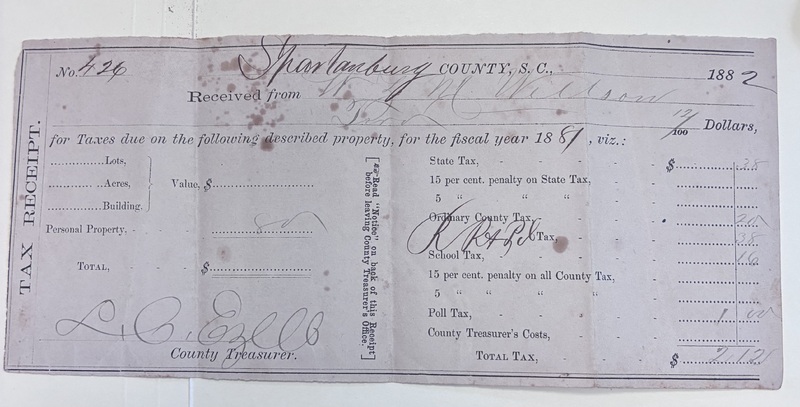 TAX RECEIPT.
No. 426 Spartanburg COUNTY, S. C., 1882
Received from M Wilson
12/100 Dollars,
for Taxes due on the following described property, for the fiscal year 1881, viz.:
Lots,
Acres,
Building.
Value, $
Personal Property, 80
TOTAL, $
L. C. Ezell
County Treasurer.
[Read "Notice" on back of this Receipt
before leaving County Treasurer's Office.]
State Tax, $ 38
15 per cent. penalty on State Tax,
5 " " "
Ordinary County Tax, 20
R R Tax, 38
School Tax, 16
15 per cent. penalty on all County Tax,
5 " " " "
Poll Tax, 1 00
County Treasurer's Costs,
TOTAL TAX, $ 2.12